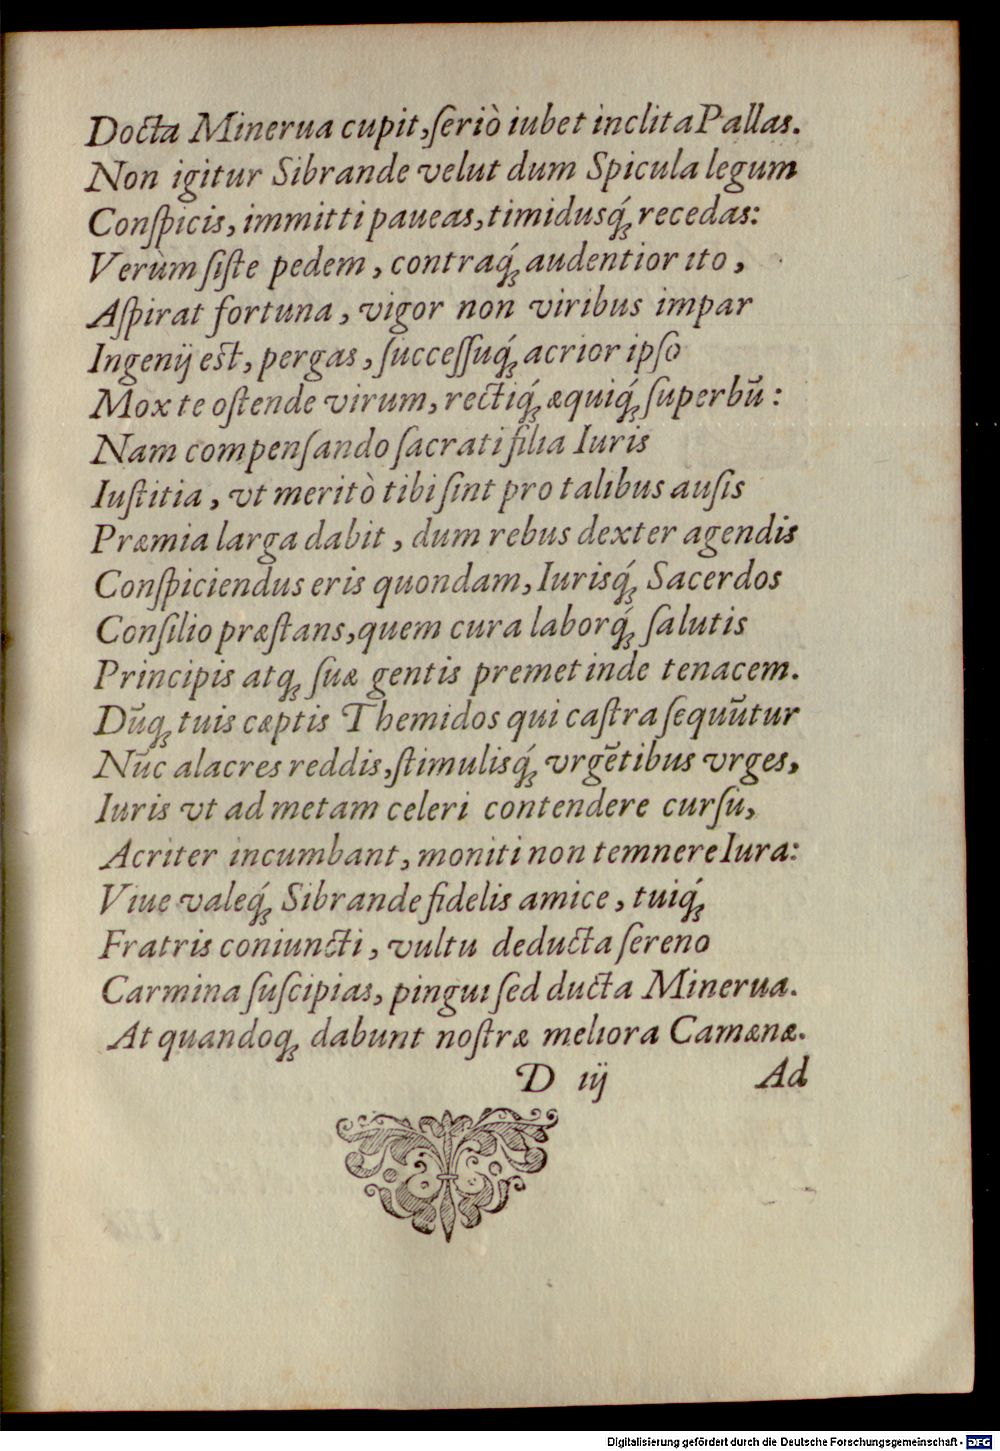 Docta Minerua cupit, ſeriò iubet inclita Pallas.
Non igitur Sibrande velut dum Spicula legum
Conſpicis, immitti paueas, timidusq́; recedas:
Verùm ſiſte pedem, contraq́; audentior ito,
Aſpirat fortuna, vigor non viribus impar
Ingenij est, pergas, ſucceſſuq́; acrior ipſo
Mox te oſtende virum, rectiq́; æquiq́; ſuperbū:
Nam compenſando ſacrati filia Iuris
Iuſtitia, vt meritò tibi ſint pro talibus auſis
Præmia larga dabit, dum rebus dexter agendis
Conſpiciendus eris quondam, Iurisq́; Sacerdos
Conſilio præſtans, quem cura laborq́; ſalutis
Principis atq; ſuæ gentis premet inde tenacem.
Dūq; tuis cæptis Themidos qui caſtra ſequūtur
Nūc alacres reddis, ſtimulisq́; vrgētibus vrges,
Iuris vt ad metam celeri contendere curſu,
Acriter incumbant, moniti non temnere Iura:
Viue valeq́; Sibrande fidelis amice, tuiq́;
Fratris coniuncti, vultu deducta ſereno
Carmina ſuſcipias, pingui ſed ducta Minerua.
At quandoq; dabunt noſtræ meliora Camænæ.
D iij Ad
Digitalisierung gefördert durch die Deutsche Forschungsgemeinschaft - DFG